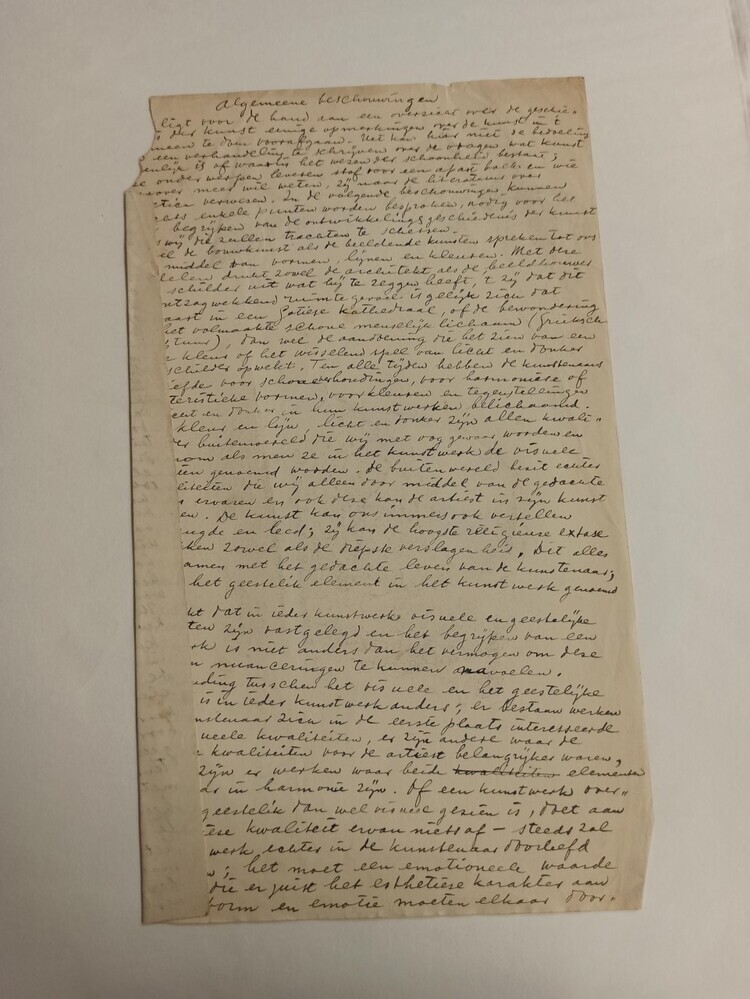 Algemeene beschouwingen
ligt voor de hand aan een overzicht over de geschie-
s der kunst eenige opmerkingen over de kunst in 't
meen te doen voorafgaan. Het kan hier niet de bedoeling
een verhandeling te schrijven over de vragen, wat kunst
enlijk is of waarin het wezen der schoonheid bestaat;
e onderwerpen leveren stof voor een apart boek en wie
over meer wil weten, zij naar de literatuur over
tiek verwezen. In de volgende beschouwingen kunnen
ts enkele punten worden besproken, nodig voor het
begrijpen van de ontwikkelingsgeschiedenis der kunst
wij die zullen trachten te schetsen.
el de bouwkunst als de beeldende kunsten spreken tot ons
middel van vormen, lijnen en kleuren. Met deze
delen drukt zowel de architekt, als de beeldhouwer
schilder uit wat hij te zeggen heeft, 't zij dat dit
ntzagwekkend ruimtegevoel is gelijk zich dat
aart in een Gotiese kathedraal, of de bewondering
het volmaakte schone menselijk lichaam (Grieksch
), dan wel de aandoening die het zien van een
kleur of het wisselend spel van licht en donker
schilder opwekt. Ten alle tijden hebben de kunstenaars
iefde voor schone verhoudingen, voor harmoniese of
teristieke vormen, voor kleuren en tegenstellingen
cht en donker in hun kunstwerken belichaamd.
kleur en lijn, licht en donker zijn allen kwali-
der buitenwereld die wij met oog gewaar worden en
om als men ze in het kunstwerk de visuele
en genoemd worden. De buitenwereld bezit echter
liteiten die wij alleen door middel van de gedachte
n ervaren en ook deze kan de artiest in zijn kunst
en. De kunst kan ons immers ook vertellen
ugde en leed; zij kan de hoogste religieuse extase
ken zowel als de diepste verslagenheid. Dit alles
amen met het gedachte leven van de kunstenaar;
het geestelik element in het kunstwerk genoemd
kt dat in ieder kunstwerk visuele en geestelijke
ten zijn vastgelegd en het begrijpen van een
rk is niet anders dan het vermogen om deze
n nuanceringen te kunnen navoelen.
uding tusschen het visuele en het geestelijke
is in ieder kunstwerk anders; er bestaan werken
nstenaar zich in de eerste plaats interesseerde
uele kwaliteiten, er zijn andere waar de
kwaliteiten voor de artiest belangrijker waren,
zijn er werken waar beide kwaliteiten elementen
ar in harmonie zijn. Of een kunstwerk over-
geestelik dan wel visueel gezien is, doet aan
ese kwaliteit ervan niets af – steeds zal
werk echter in de kunstenaar doorleefd
, het moet een emotioneele waarde
die er juist het esthetiese karakter aan
vorm en emotie moeten elkaar door-